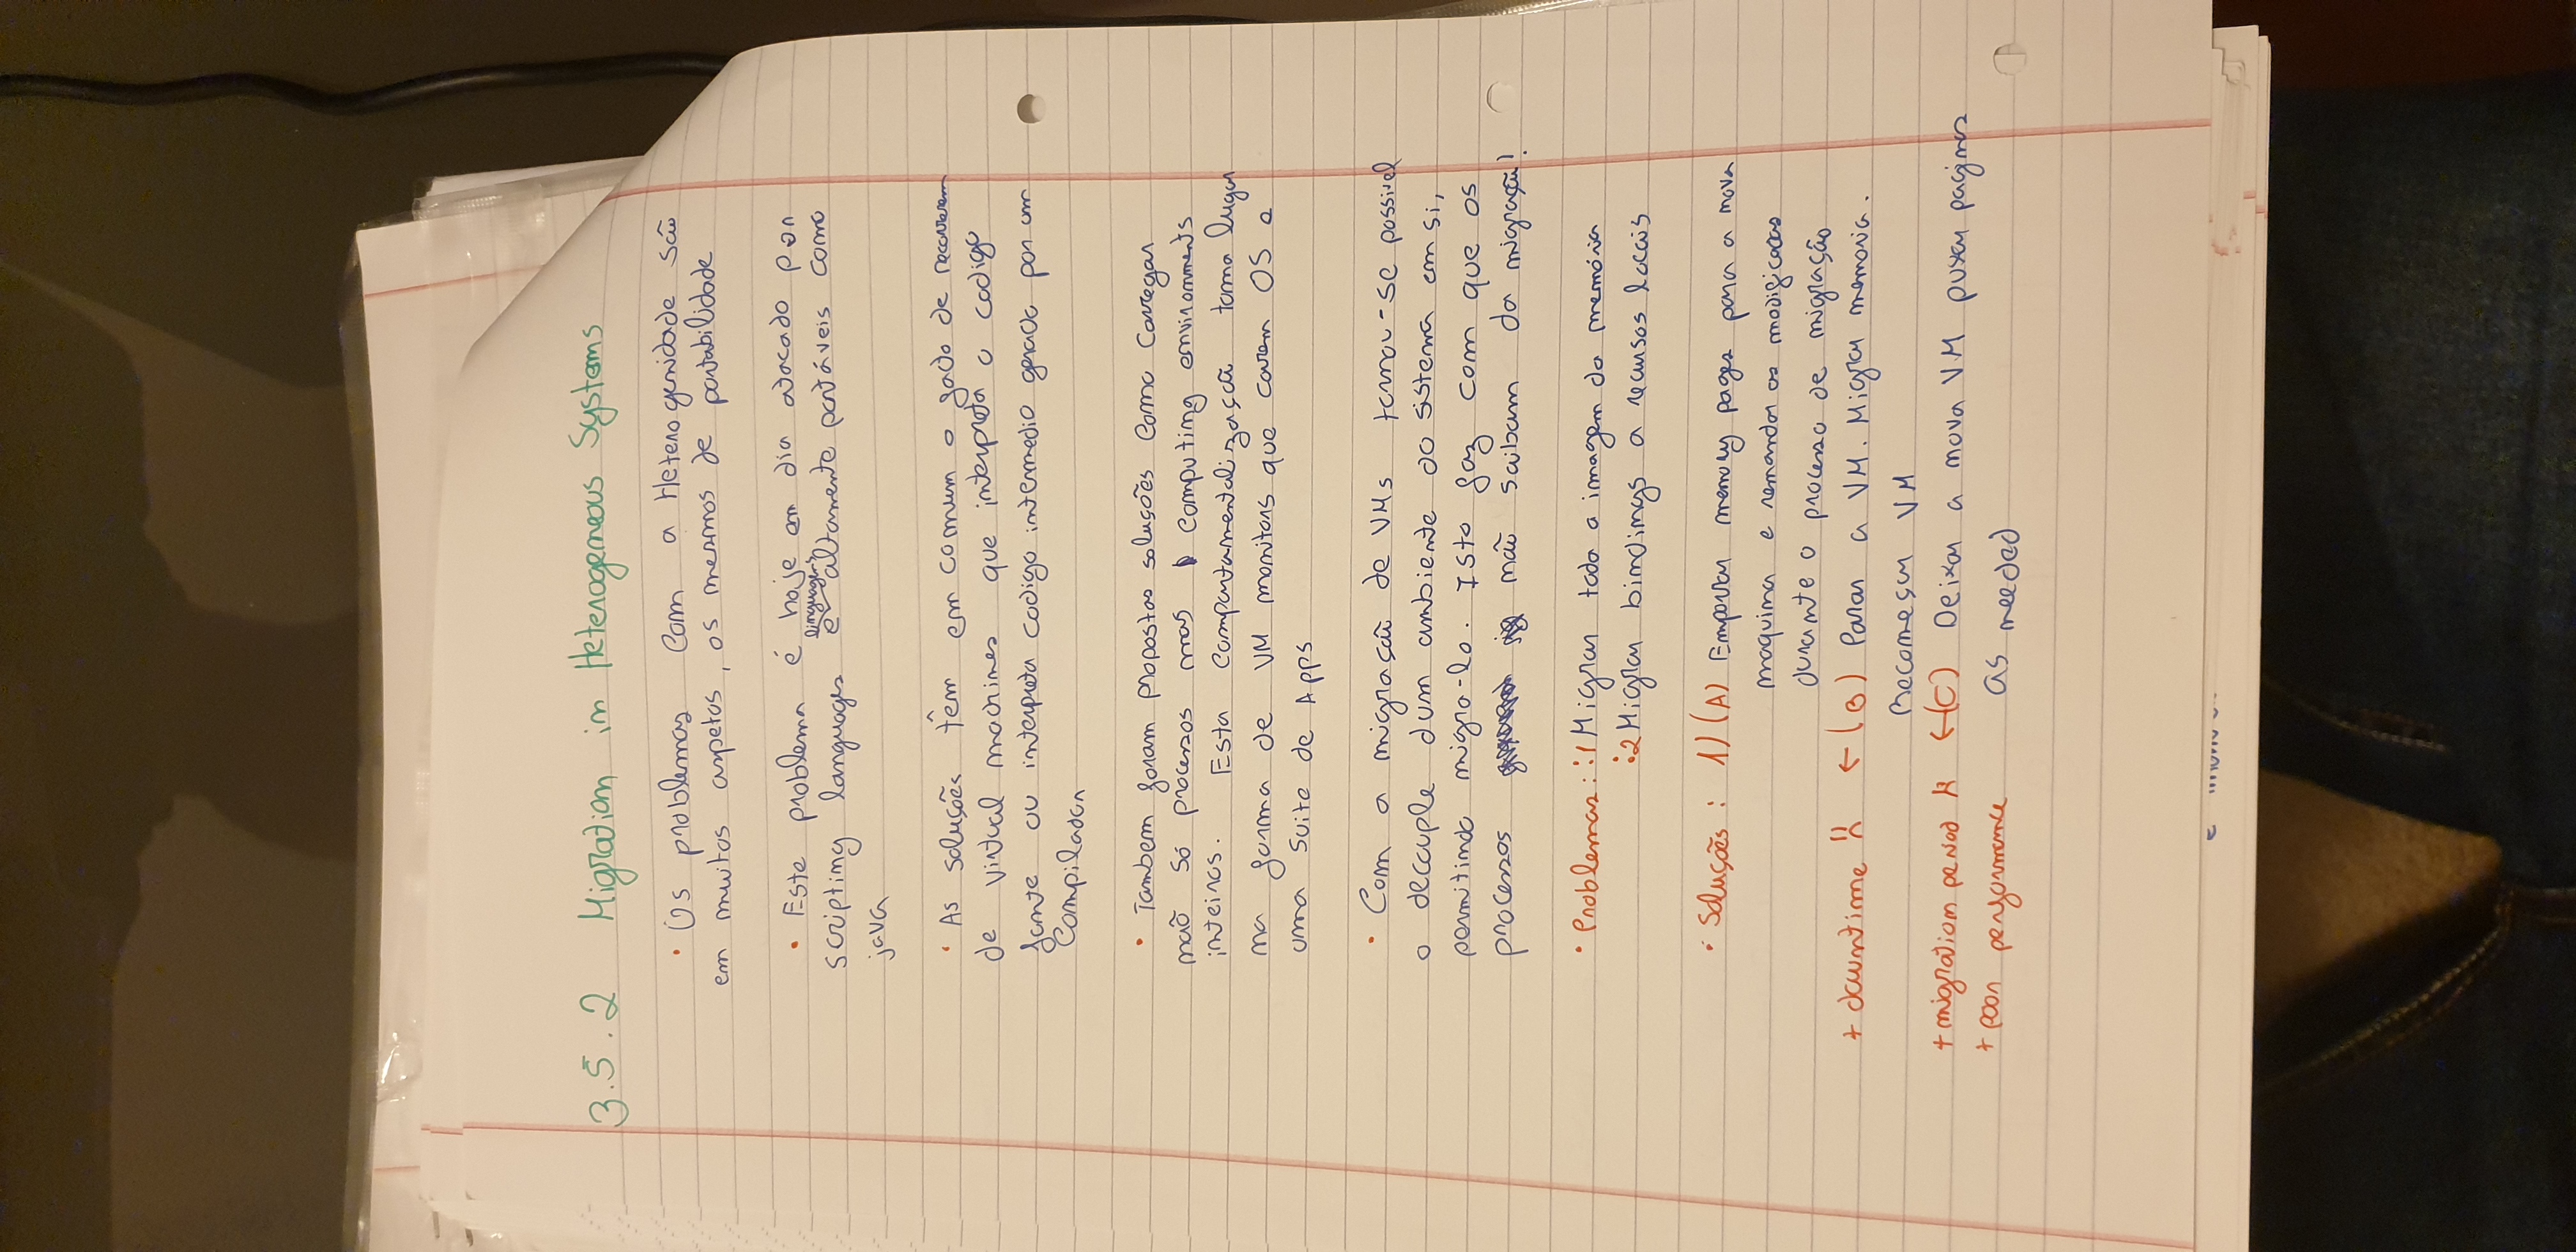 3.5.2 Migration in Heterogeneous Systems
• Os problemas com a Heterogenidade são
em muitos aspetos, os mesmos de portabilidade
• Este problema é hoje em dia atacado por
linguagens
scripting languages e altamente portáveis como
java
• As soluções têm em comum o facto de recorrerem
de virtual machines que interpreta o codigo
fonte ou interpreta codigo intermedio gerado por um
Compilador
• Tambem foram propostas soluções como carregar
não só processos mas computing environments
inteiros. Esta compartamentalização toma lugar
na forma de VM monitors que correm OS e
uma suite de Apps
• Com a migração de VMs tornou-se possivel
o decouple dum ambiente do sistema em si,
permitindo migra-lo. Isto faz com que os
processos não saibam da migração!
• Problemas: :1 Migrar toda a imagem da memória
:2 Migrar bindings a recursos locais
• Soluções: 1) (A) Empurrar memory pages para a nova
maquina e remandar as modificadas
durante o processo de migração
+ downtime :( ← (B) Parar a VM. Migrar memoria.
Recomeçar VM
+ migration period :( ← (C) Deixar a nova VM puxar paginas
+ poor performance as needed